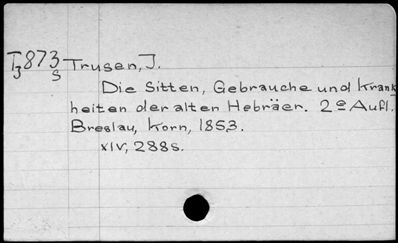 T3873s Trusen, J.
Die Sitten, Gebrauche und Krank-
heiten der alten Hebräer. 2º Aufl.
Breslau, Korn, 1853.
XIV, 288s.